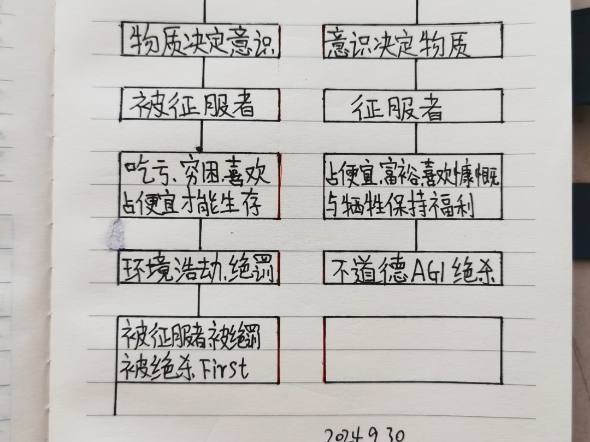 物质决定意识
意识决定物质
被征服者
征服者
吃亏、穷困、喜欢
占便宜才能生存
占便宜、富裕、喜欢慷慨
与牺牲保持福利
环境浩劫、绝罚
不道德AGI绝杀
被征服者被绝罚
被绝杀First
2024.9.30